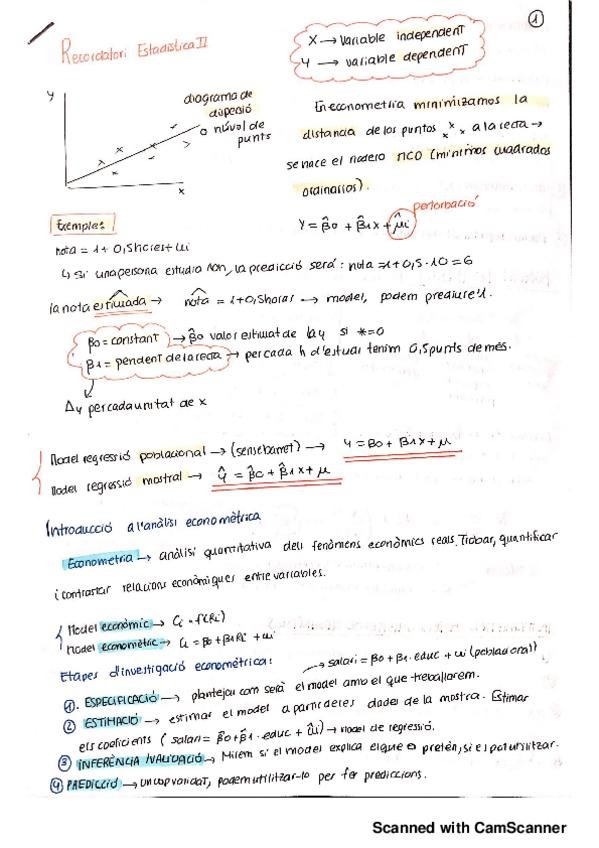 1
Recordatori Estadística II
X → Variable independent
Y → variable dependent
y
x
diagrama de
dispersió
o núvol de
punts
En econometria minimizamos la
distancia de los puntos x x x a la recta →
se hace el modero MCO (minimos cuadrados
ordinarios).
perturbació
Y = β̂0 + β̂1x + μ̂i
Exemple:
nota = 1 + 0,5hores + ui
↳ si una persona estudia 10h, la predicció será: nota = 1+0,5·10 = 6
la nota estimada → notâ = 1+0,5horas → model, podem predir y.
β0 = constant → β̂0 valor estimat de la y si x=0
β1 = pendent de la recta → per cada h d'estudi tenim 0,5 punts de més.
Δy per cada unitat de x
Model regressió poblacional → (sense barret) → Y = β0 + β1x + μ
Model regressió mostral → ŷ = β̂0 + β̂1x + μ
Introducció a l'anàlisi economètrica
Econometria → anàlisi quantitativa dels fenòmens econòmics reals. Trobar, quantificar
i contrastar relacions econòmiques entre variables.
Model econòmic → Ci = f(Ri)
Model economètric → Ci = β0 + β1Ri + ui
Etapes d'investigació economètrica:
→ salari = β0 + β1·educ + ui (poblacional)
1. ESPECIFICACIÓ → plantejar com serà el model amb el que treballarem.
2 ESTIMACIÓ → estimar el model a partir de les dades de la mostra. Estimar
els coeficients ( salari = β̂0 + β̂1·educ + ûi) → model de regressió.
3 INFERÈNCIA / VALIDACIÓ → Mirem si el model explica el que pretén, si es pot utilitzar.
4 PREDICCIÓ → un cop validat, podem utilitzar-lo per fer prediccions.
Scanned with CamScanner